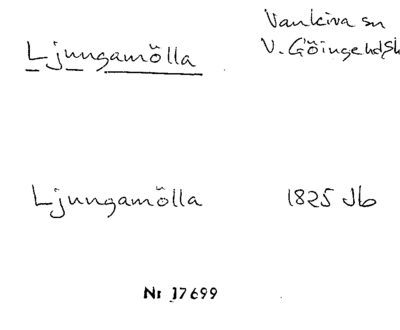 Vankiva sn
Ljungamölla V. Göinge hd, Sk
Ljungamölla 1825 Jb
Nr 17699